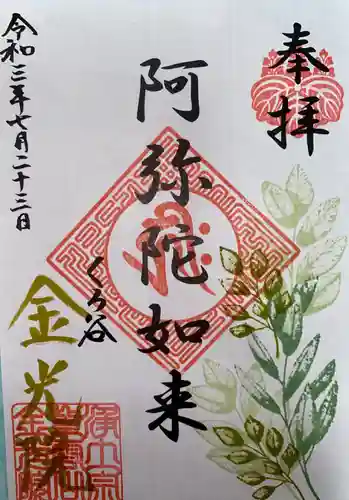 奉拝
阿弥陀如来
くろ谷
金光院
令和三年七月二十三日